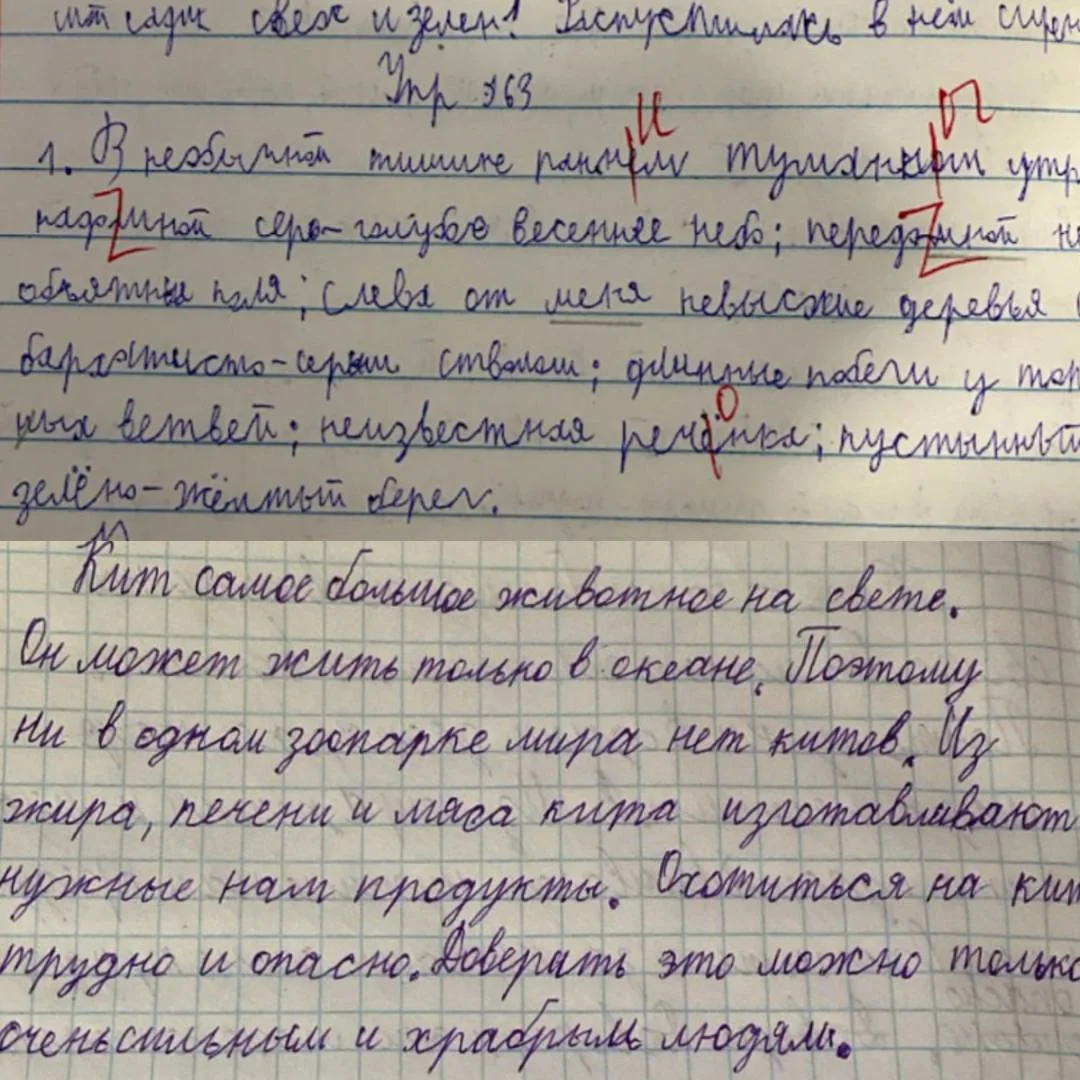 сад свеж и зелен! Распустилась в нём сирен
Упр 263
1. В необычной тишине раннем туманным утр
надо мной серо-голубое весеннее небо; передо мной не
объятные поля; слева от меня невысокие деревья с
бархатисто-серым стволом; длинные побеги у
ных ветвей; неизвестная речёнка; пустынный
зелёно-жёлтый берег.
Кит самое большое животное на свете.
Он может жить только в океане. Поэтому
ни в одном зоопарке мира нет китов. Из
жира, печени и мяса кита изготавливают
нужные нам продукты. Охотиться на кит
трудно и опасно. Доверять это можно только
оченьсильным и храбрым людям.